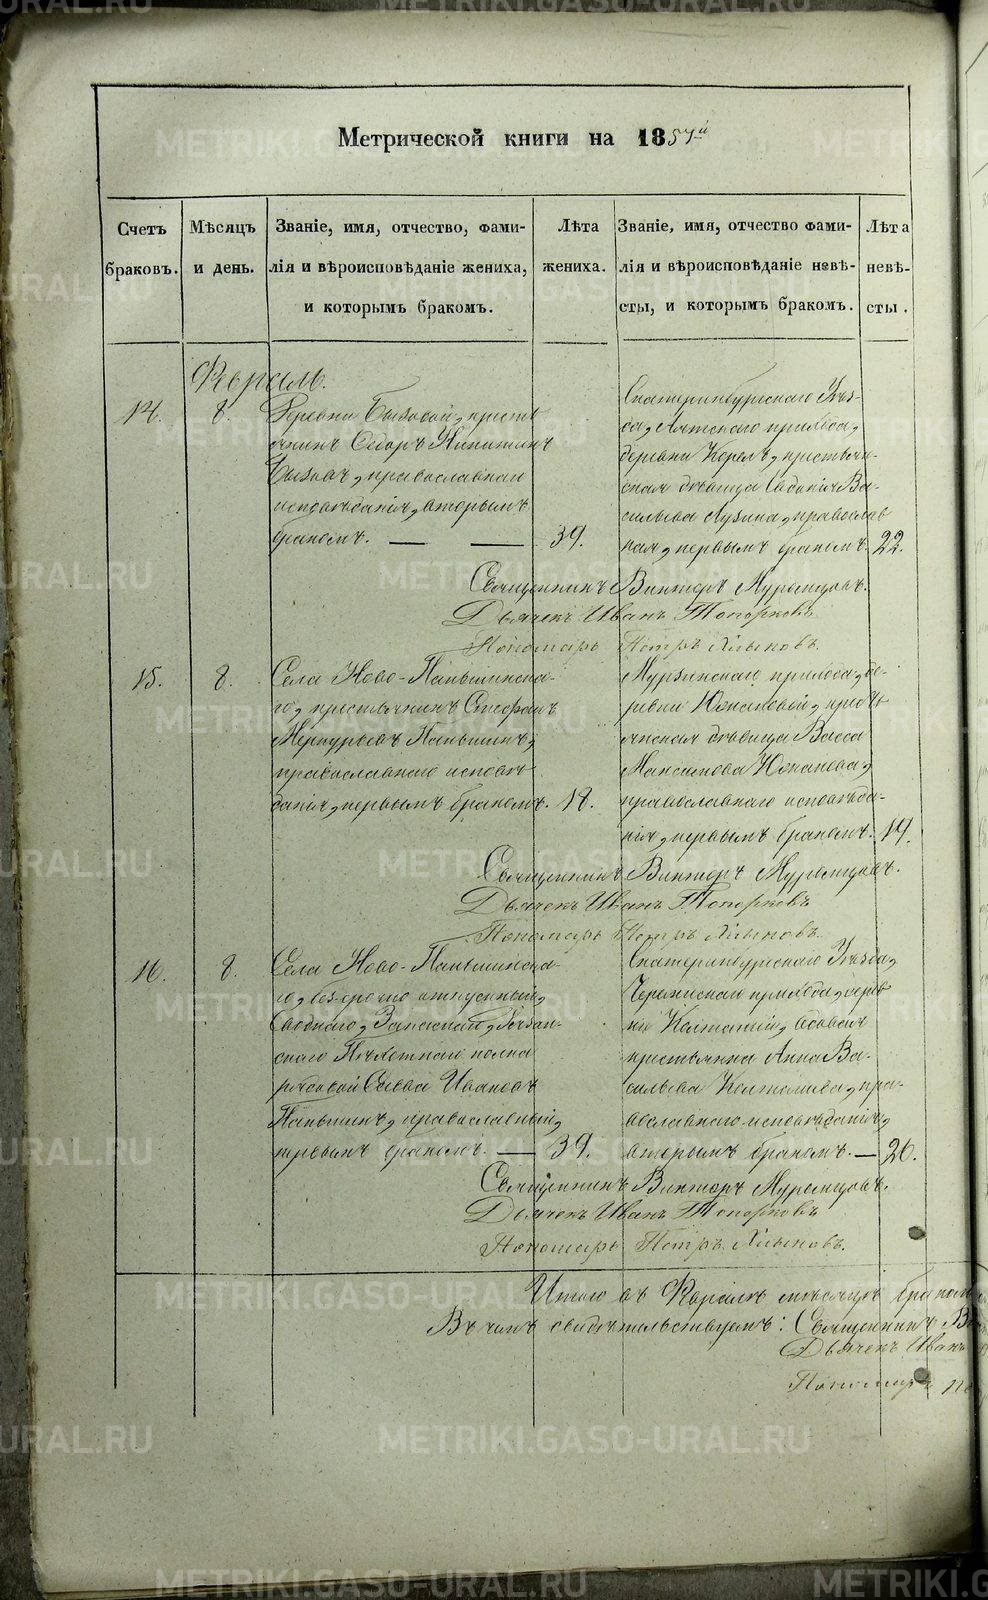 Метрической книги на 1857й
Счетъ браковъ.
Мѣсяцъ и день.
Званіе, имя, отчество, фами-
лія и вѣроисповѣданіе жениха,
и которымъ бракомъ.
Лѣта жениха.
Званіе, имя, отчество фами-
лія и вѣроисповѣданіе невѣ-
сты, и которымъ бракомъ.
Лѣта невѣ-
сты.
14. 8.
Деревни Быковой, кресть
янинъ Егоръ Никитинъ
Быковъ, православнаго
исповѣданія, вторымъ
бракомъ. — — 39.
Екатеринбургскаго Уѣз-
да, Аятскаго прихода,
деревни Корелъ, крестьян-
ская дѣвица Евдокія Ва-
сильева Лузина, православ
ная, первымъ бракомъ. 22.
Священникъ Викторъ Мурминцовъ.
Дьячекъ Иванъ Топорковъ
Пономарь Петръ Хлыновъ.
15. 8.
Села Ново-Паньшинска-
го, крестьянинъ Стефанъ
Меркурьевъ Паньшинъ,
православнаго исповѣ
данія, первымъ бракомъ. 18.
Мурзинскаго прихода, де-
ревни Южаковой, кресть
янская дѣвица Васса
Максимова Южакова,
православнаго исповѣда-
нія, первымъ бракомъ. 19.
Священникъ Викторъ Мурминцовъ.
Дьячекъ Иванъ Топорковъ
Пономарь Петръ Хлыновъ.
16. 8.
Села Ново-Паньшинска-
го, безсрочно отпускный,
Своднаго, Запаснаго,
скаго Пѣхотнаго полка
рядовой Савва Ивановъ
Паньшинъ, православный,
первымъ бракомъ. — 39.
Екатеринбургскаго Уѣзда,
Черемисскаго прихода, дерев
ни Колташи, вдовая
крестьянка Анна Ва-
сильева Колташева, пра-
вославнаго исповѣданія,
вторымъ бракомъ. — 26.
Священникъ Викторъ Мурминцовъ.
Дьячекъ Иванъ Топорковъ
Пономарь Петръ Хлыновъ.
Итого въ Февралѣ мѣсяцѣ браковъ
Въ чемъ свидѣтельствуемъ: Священникъ
Дьячекъ Иванъ
Пономарь
METRIKI.GASO-URAL.RU